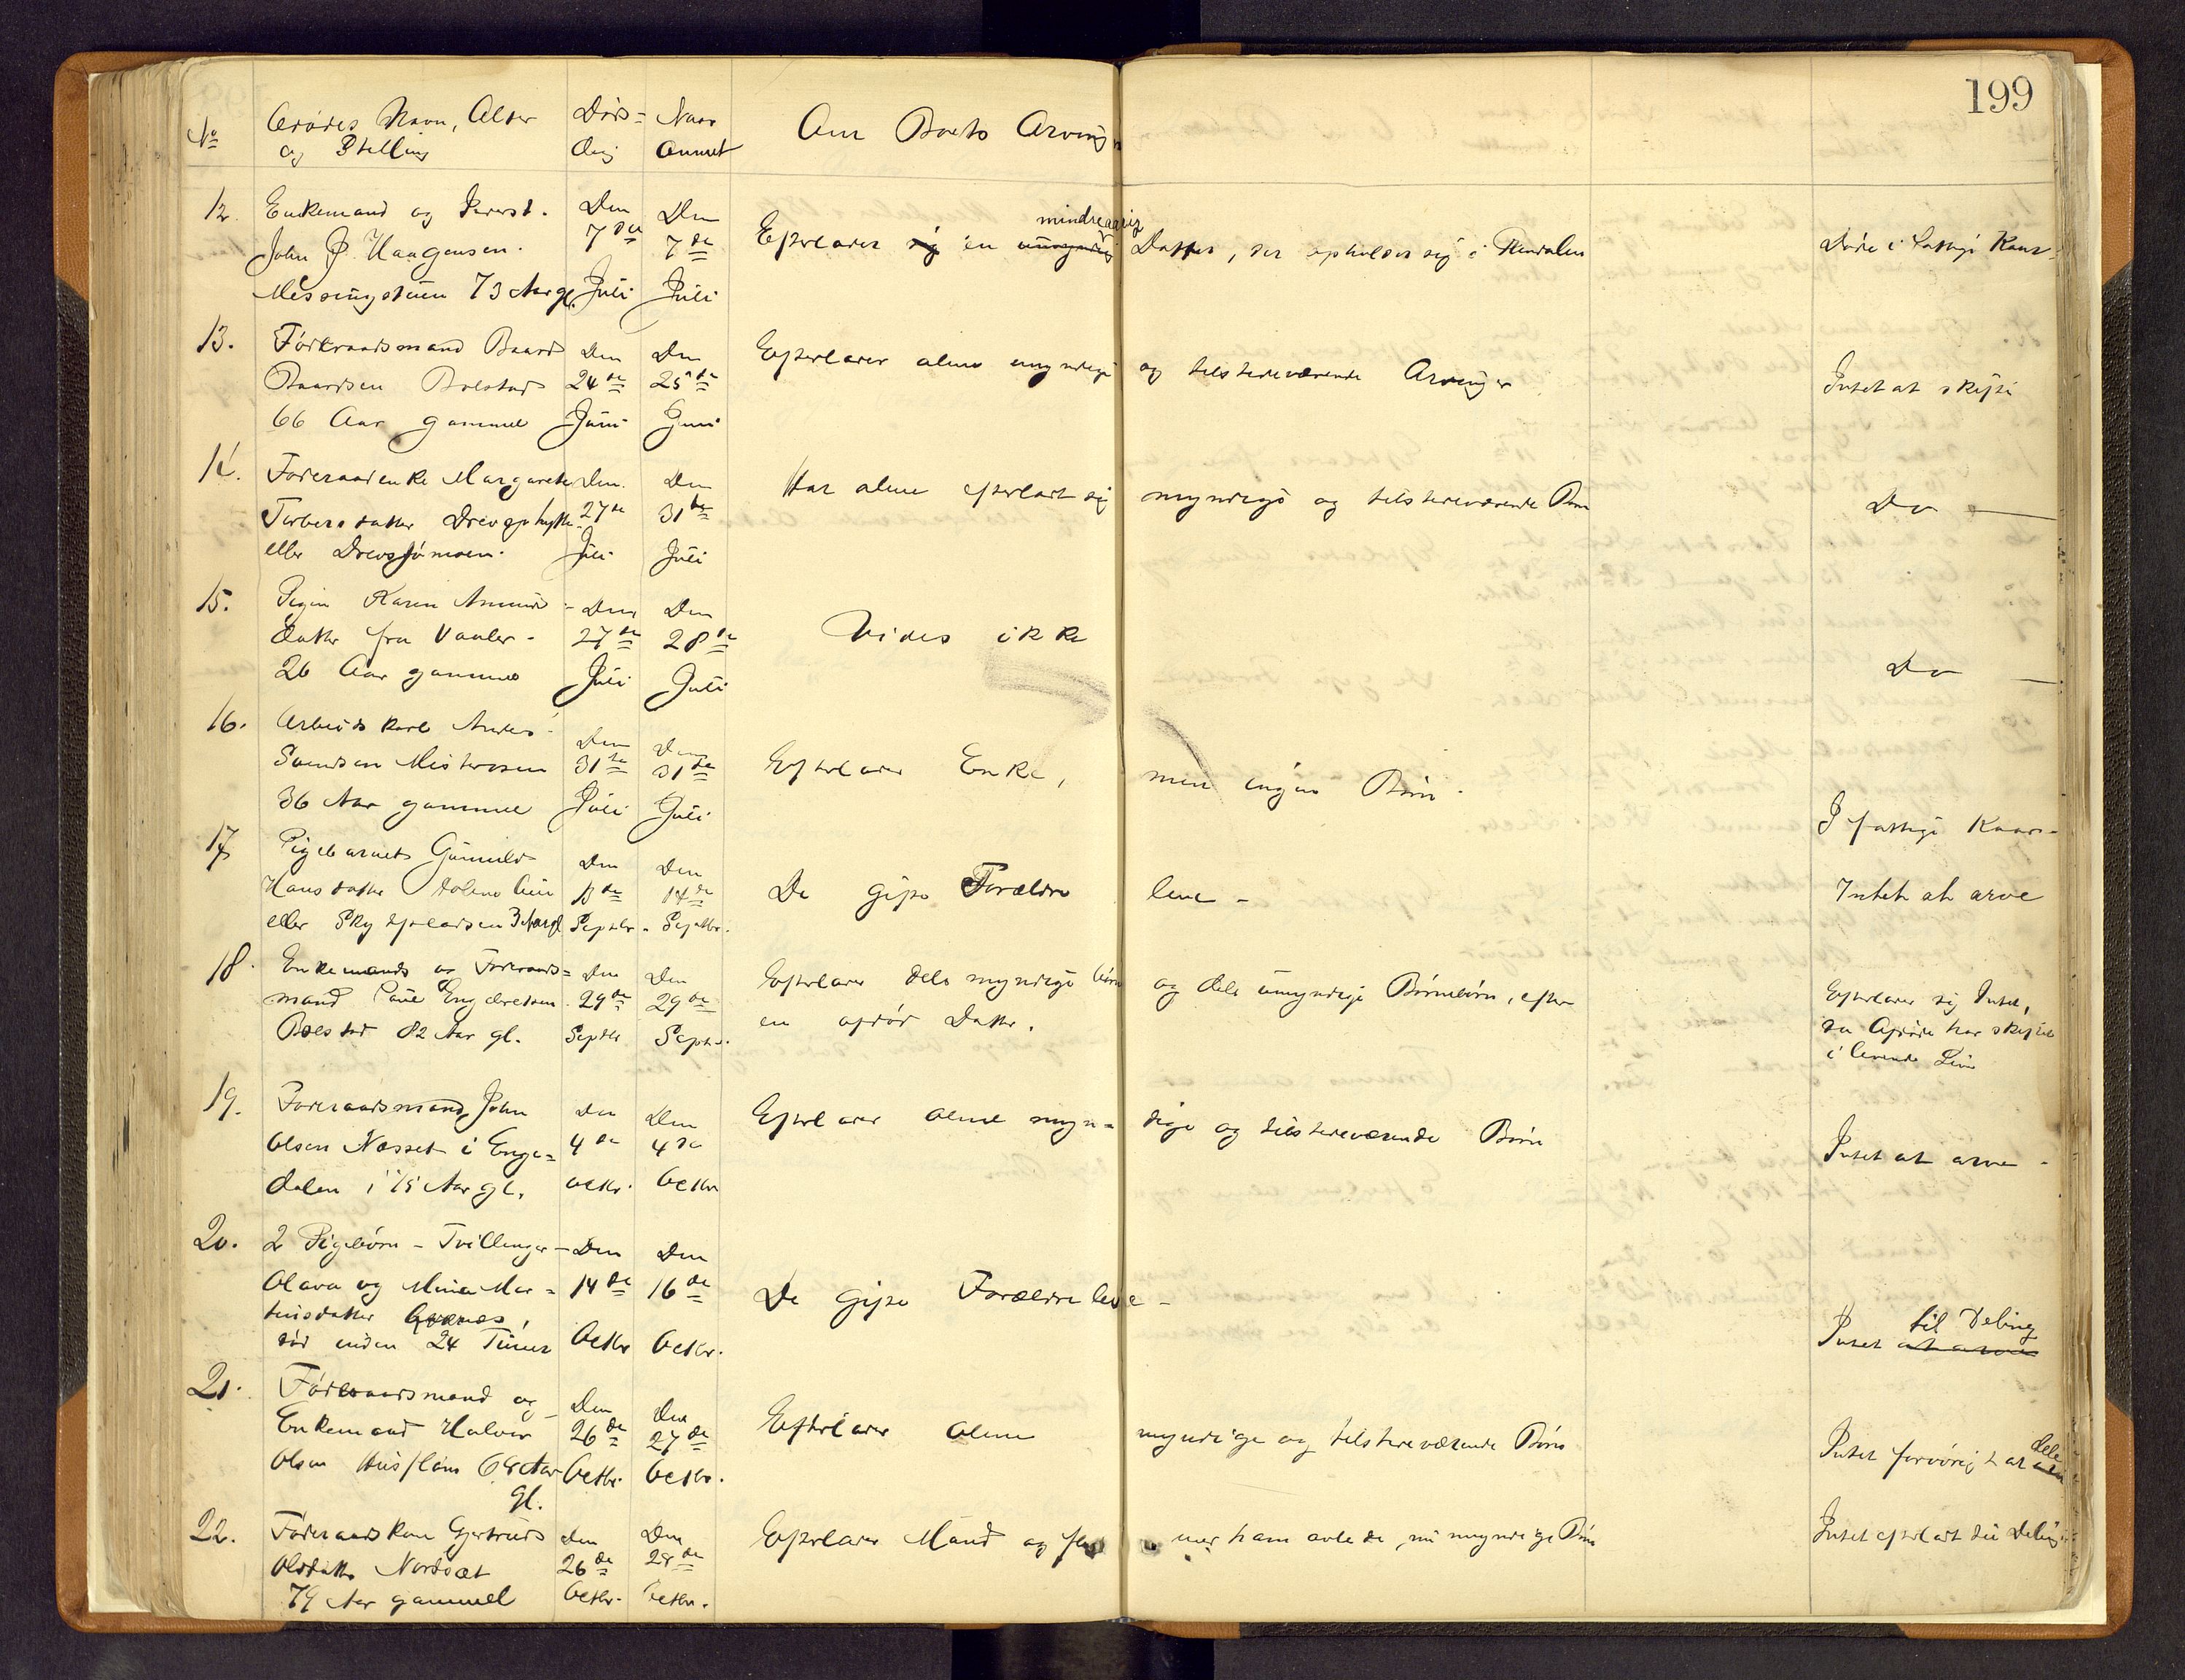 199
No Afdødes Navn, Alder Døds= Naar Om Boets Arvinger
og Stilling dag anmeldt
12. Enkemand og Inderst. Den Den mindreaarig
John P. Haagensen. 7de 7de Efterlader sig en umyndig Datter, der opholder sig i Rendalen Døde i fattige Kaar.
Messingstuen 73 Aar gl. Juli Juli
13. Föderaadsmand Baard Den Den Efterlader alene myndige og tilstedeværende Arvinger Intet at skifte
Baardsen Bolstad 24de 25de
66 Aar gammel Juni Juni
14. Föderaadenke Margarete Den Den Har alene efterladt sig myndige og tilstedeværende Børn Do
Torbersdatter 27de 31te
eller Drevsjømoen. Juli Juli
15. Pigen Karen Amund- Den Den Vides ikke Do
datter fra Vaaler. 27de 28de
26 Aar gammel Juli Juli
16. Arbeidskarl Anders Den Den
Svendsen Misterosen 31te 31te Efterlader Enke, men ingen Børn.
36 Aar gammel Juli Juli I fattige Kaar
17 Pigebarnet Gunild Den Den
Hansdatter 13de 14de De gifte Forældre leve - Intet at arve
eller 3 Aar gl Septbr. Septbr.
18. Enkemand og Föderaads= Den Den Efterlader dels myndige børn og dels umyndige Børnebørn, efter Efterlader sig Intet,
mand Paul Engebretsen 29de 29de en afdød Datter. da Afdøde har skiftet
Bolstad 82 Aar gl. Septbr Septbr. i levende Live
19. Föderaadsmand John Den Den Efterlader alene myn= dige og tilstedeværende Børn Intet at arve -
Olsen Næsset i Enge= 4de 4de
dalen, 75 Aar gl. Octbr. Octbr
20. 2 Pigebørn - Tvillinger - Den Den
Olava og Mina Mar= 14de 16de De gifte Forældre leve -
tinsdatter til Deling
død inden 24 Timer Octbr Octbr. Intet at arve
21. Föderaadsmand og Den Den
Enkemand Halvor 26de 27de Efterlader alene myndige og tilstedeværende Børn Intet forøvrigt at dele
Olsen Husfloen 68 Aar Octbr. Octbr.
gl.
22. Föderaadskone Gjertrud Den Den Efterlader Mand og med ham avlede, nu myndige Børn Intet efterladt til Deling
Olsdatter Nordsæt 26de 28de
79 Aar gammel Octbr. Octbr.